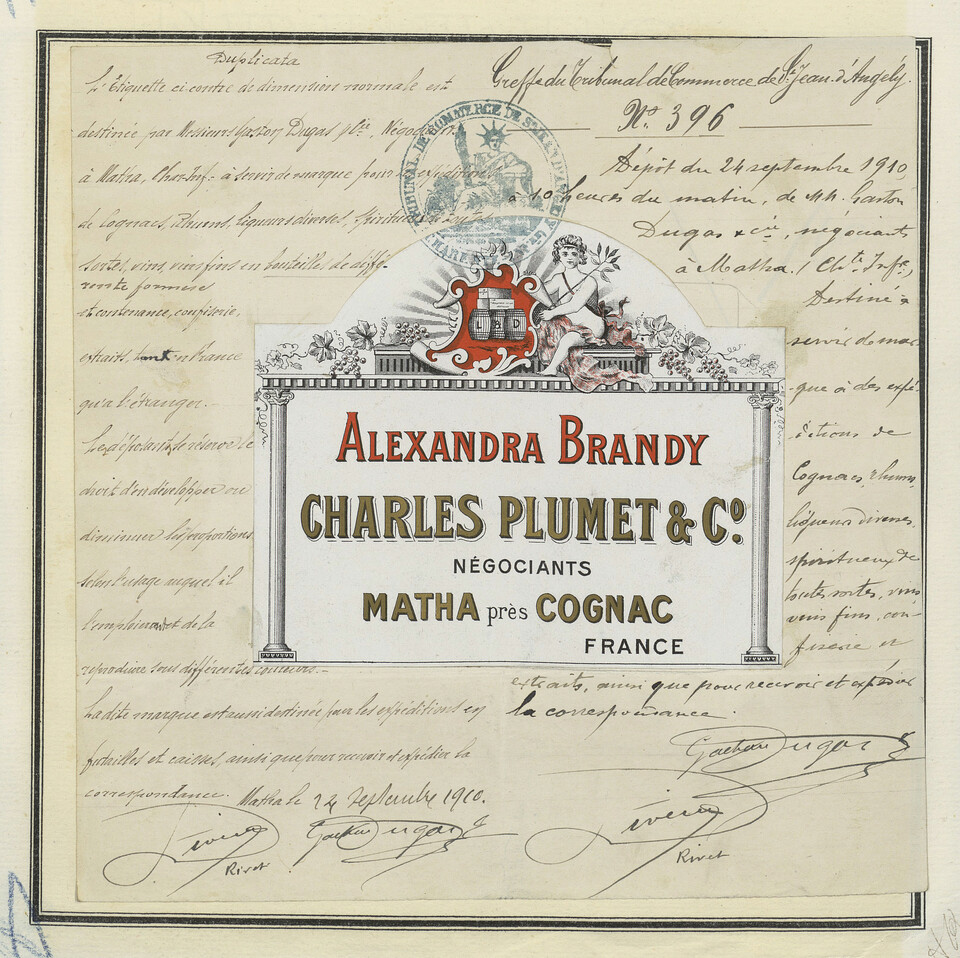 Duplicata
L'Etiquette ci-contre de dimension normale est
destinée par Messieurs Gaston Dugas & Cie, Négociants
à Matha, Char-Infre à servir de marque pour expéditions
de Cognacs, Rhums, liqueurs diverses, Spiritueux de toutes
sortes, vins, vins fins en bouteille de diffé-
rente formes
et contenance, confiserie,
extraits, tant en France
qu'à l'étranger.-
Le déposant se réserve le
droit d'en développer ou
diminuer les proportions
selon l'usage auquel il
l'emploiera et de la
reproduire sous différentes couleurs.-
La dite marque est aussi destinée pour les expéditions en
futailles et caisses, ainsi que pour recevoir et expédier la
correspondance. Matha le 24 Septembre 1910.
Rivet
Gaston Dugas &
Rivet
Greffe du Tribunal de Commerce de St Jean d'Angély.
No. 396
Dépôt du 24 septembre 1910,
à 10 heures du matin, de MM. Gaston
Dugas & Cie, négociants
à Matha (Chte Infre),
Destiné à
servir de mar
que à des expé
ditions de
Cognacs, rhums,
liqueurs diverses,
spiritueux de
toutes sortes, vins
vins fins, con-
fiserie et
extraits, ainsi que pour recevoir et expédier
la correspondance.
Gaston Dugas &
Rivet
Rivet
TRIBUNAL DE COMMERCE DE ST JEAN D'ANGELY
L & D
ALEXANDRA BRANDY
CHARLES PLUMET & Co.
NÉGOCIANTS
MATHA près COGNAC
FRANCE